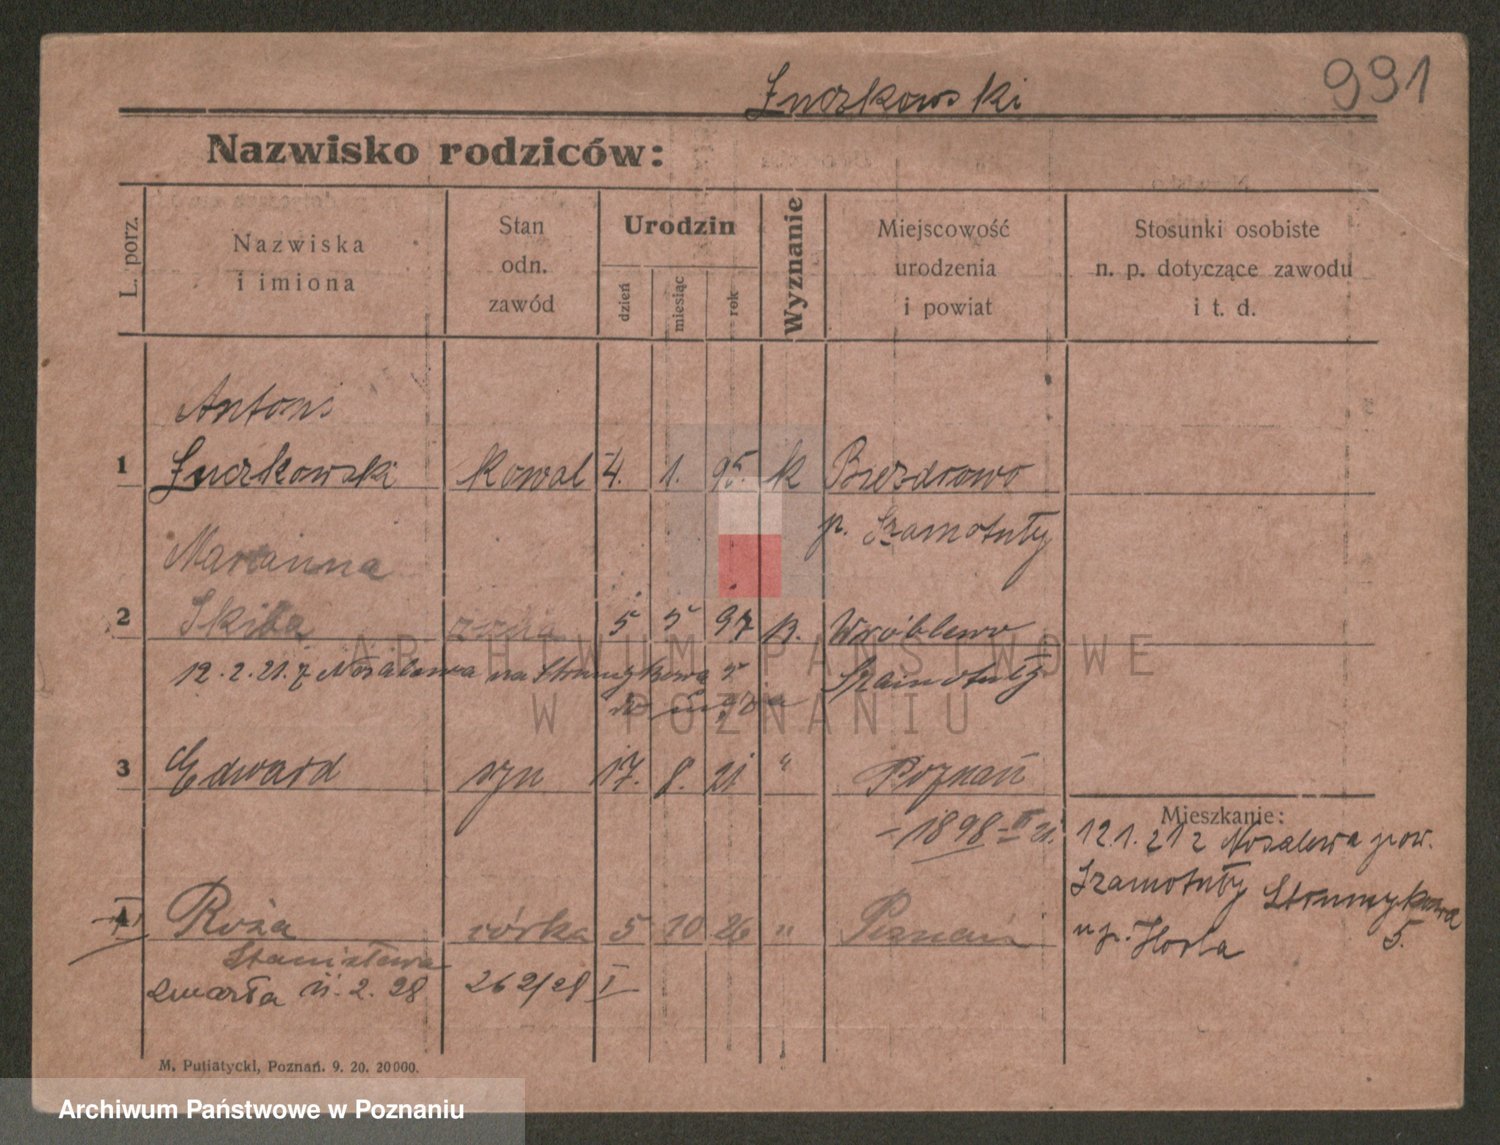 991
Żuczkowski
Nazwisko rodziców:
L. porz.
Nazwiska
i imiona
Stan
odn.
zawód
Urodzin
dzień
miesiąc
rok
Wyznanie
Miejscowość
urodzenia
i powiat
Stosunki osobiste
n. p. dotyczące zawodu
i t. d.
Antoni
1 Żuczkowski kowal 4. 1. 95. k Biezdrowo
p. Szamotuły
Marianna
2 Skiba żona 5 5 97 k. Wróblewo
12. 2. 21. z Nosalewa na Strumykową 5 Szamotuły
do męża
3 Edward syn 17. 8. 21 " Poznań
-1898-II 21.
Mieszkanie:
12.1.21 z Nosalewa pow.
Szamotuły Strumykowa
5.
u p. Horla
4 Róża córka 5 10 26 " Poznań
Stanisława
zmarła 11. 2. 28 262/28 I
M. Putiatycki, Poznań. 9. 20. 20000.
ARCHIWUM PAŃSTWOWE
W POZNANIU
Archiwum Państwowe w Poznaniu